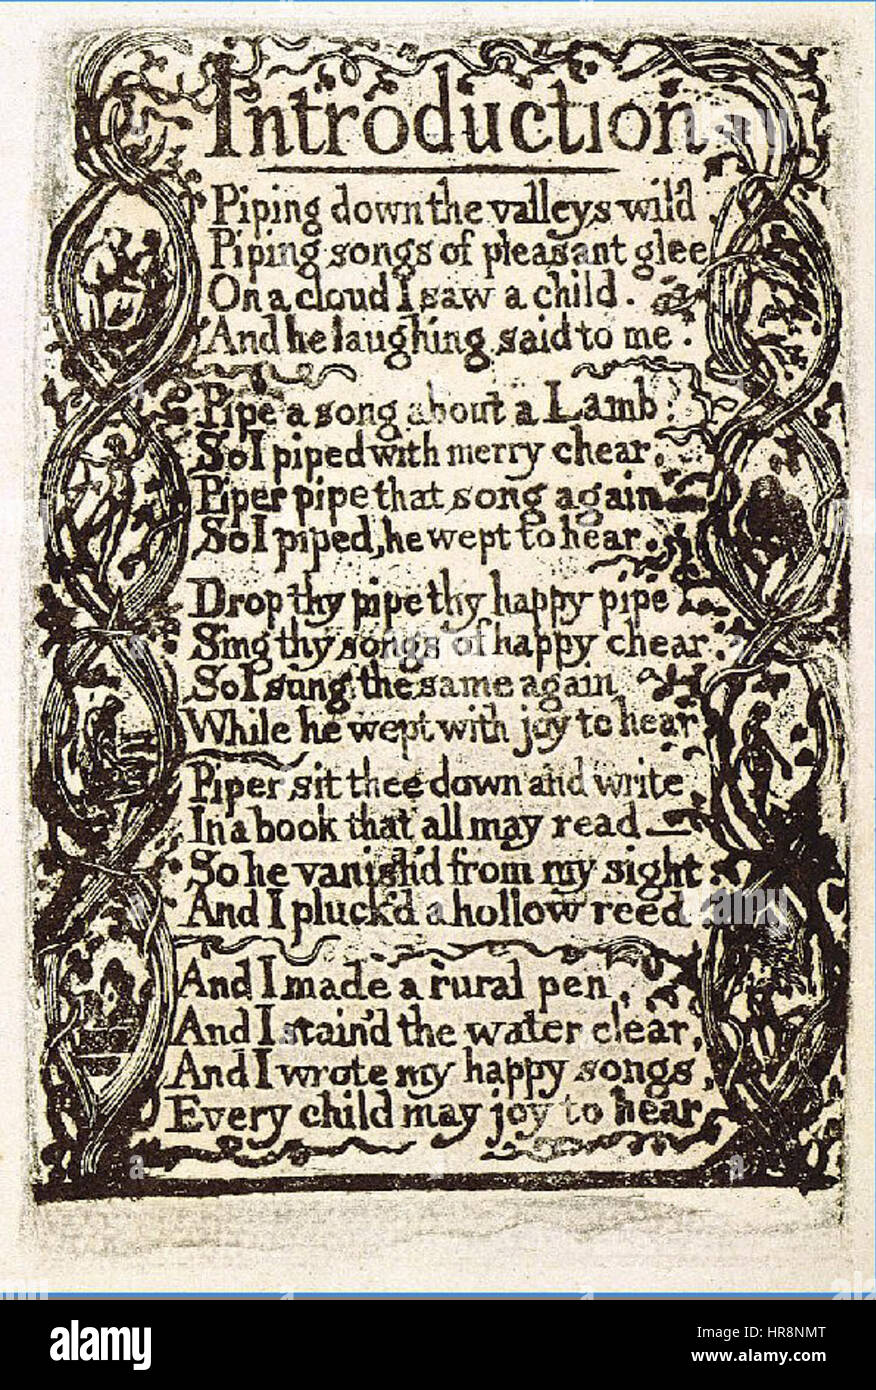 Introduction
Piping down the valleys wild
Piping songs of pleasant glee
On a cloud I saw a child.
And he laughing said to me.
Pipe a song about a Lamb:
So I piped with merry chear,
Piper pipe that song again—
So I piped, he wept to hear.
Drop thy pipe thy happy pipe
Sing thy songs of happy chear,
So I sung the same again
While he wept with joy to hear
Piper sit thee down and write
In a book that all may read—
So he vanish'd from my sight
And I pluck'd a hollow reed
And I made a rural pen,
And I stain'd the water clear,
And I wrote my happy songs,
Every child may joy to hear
alamy
Image ID: HR8NMT
www.alamy.com